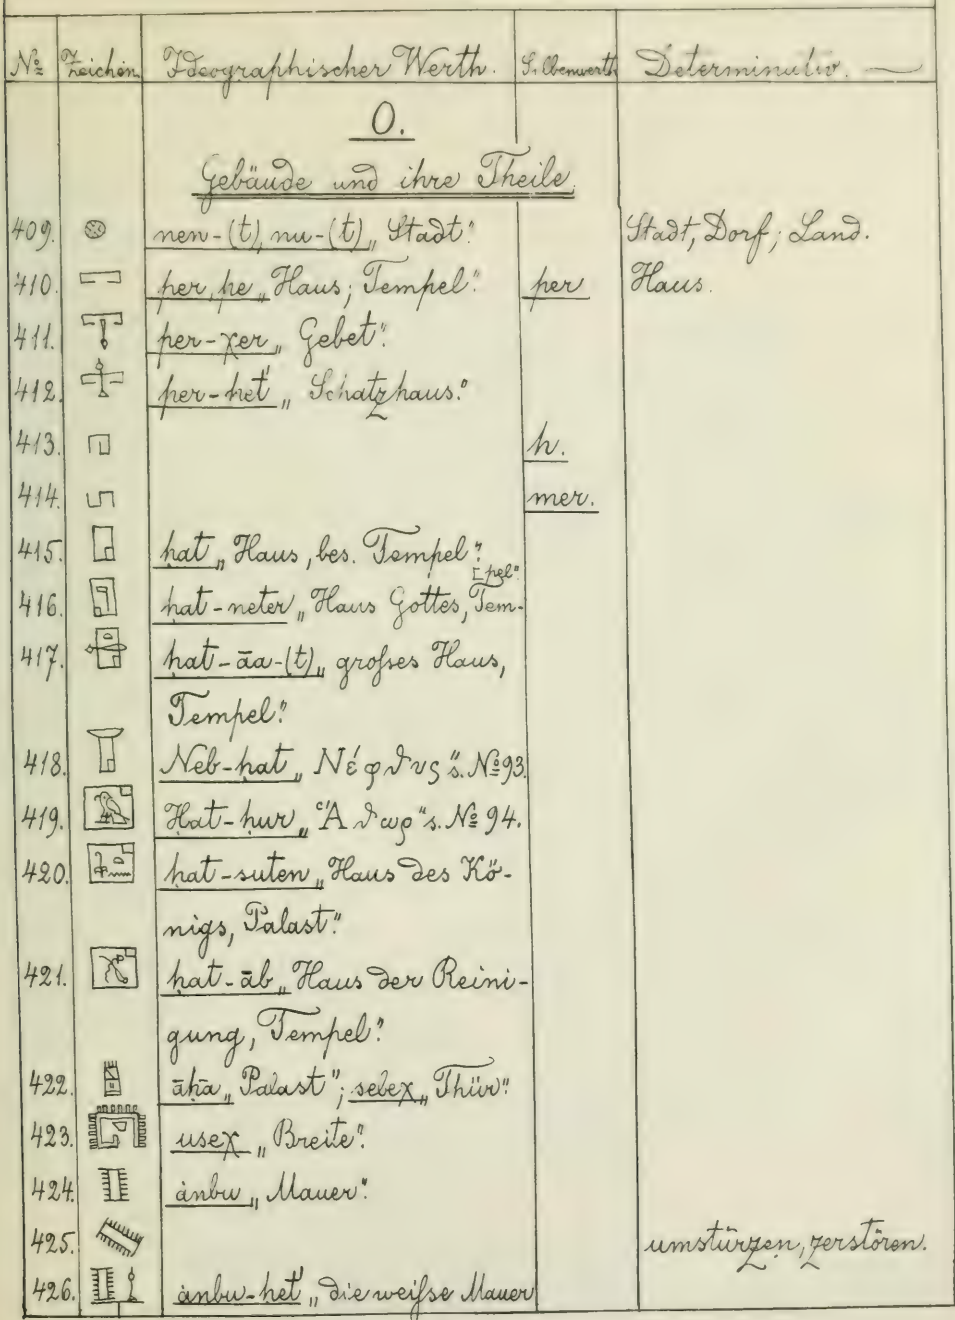 № Zeichen Ideographischer Werth. Silbenwerth Determinativ. —
O.
Gebäude und ihre Theile
409. nen-(t), nu-(t) „Stadt“. Stadt, Dorf; Land.
410. per, pe „Haus; Tempel“. per Haus.
411. per-χer „Gebet“.
412. per-ḥet' „Schatzhaus.“
413. h.
414. mer.
415. ḥat „Haus, bes. Tempel“.
[pel“.
416. ḥat-neter „Haus Gottes, Tem-
417. ḥat-āa-(t) „großes Haus,
Tempel“.
418. Neb-ḥat „Νέφϑυς“ s. № 93.
419. Ḥat-ḥur „Ἁϑωρ“ s. № 94.
420. ḥat-suten „Haus des Kö-
nigs, Palast“.
421. ḥat-āb „Haus der Reini-
gung, Tempel“.
422. āḥā „Palast“; sebeχ „Thür“.
423. useχ „Breite“.
424. ȧnbu „Mauer“.
425. umstürzen, zerstören.
426. ȧnbu-ḥet' „die weiße Mauer